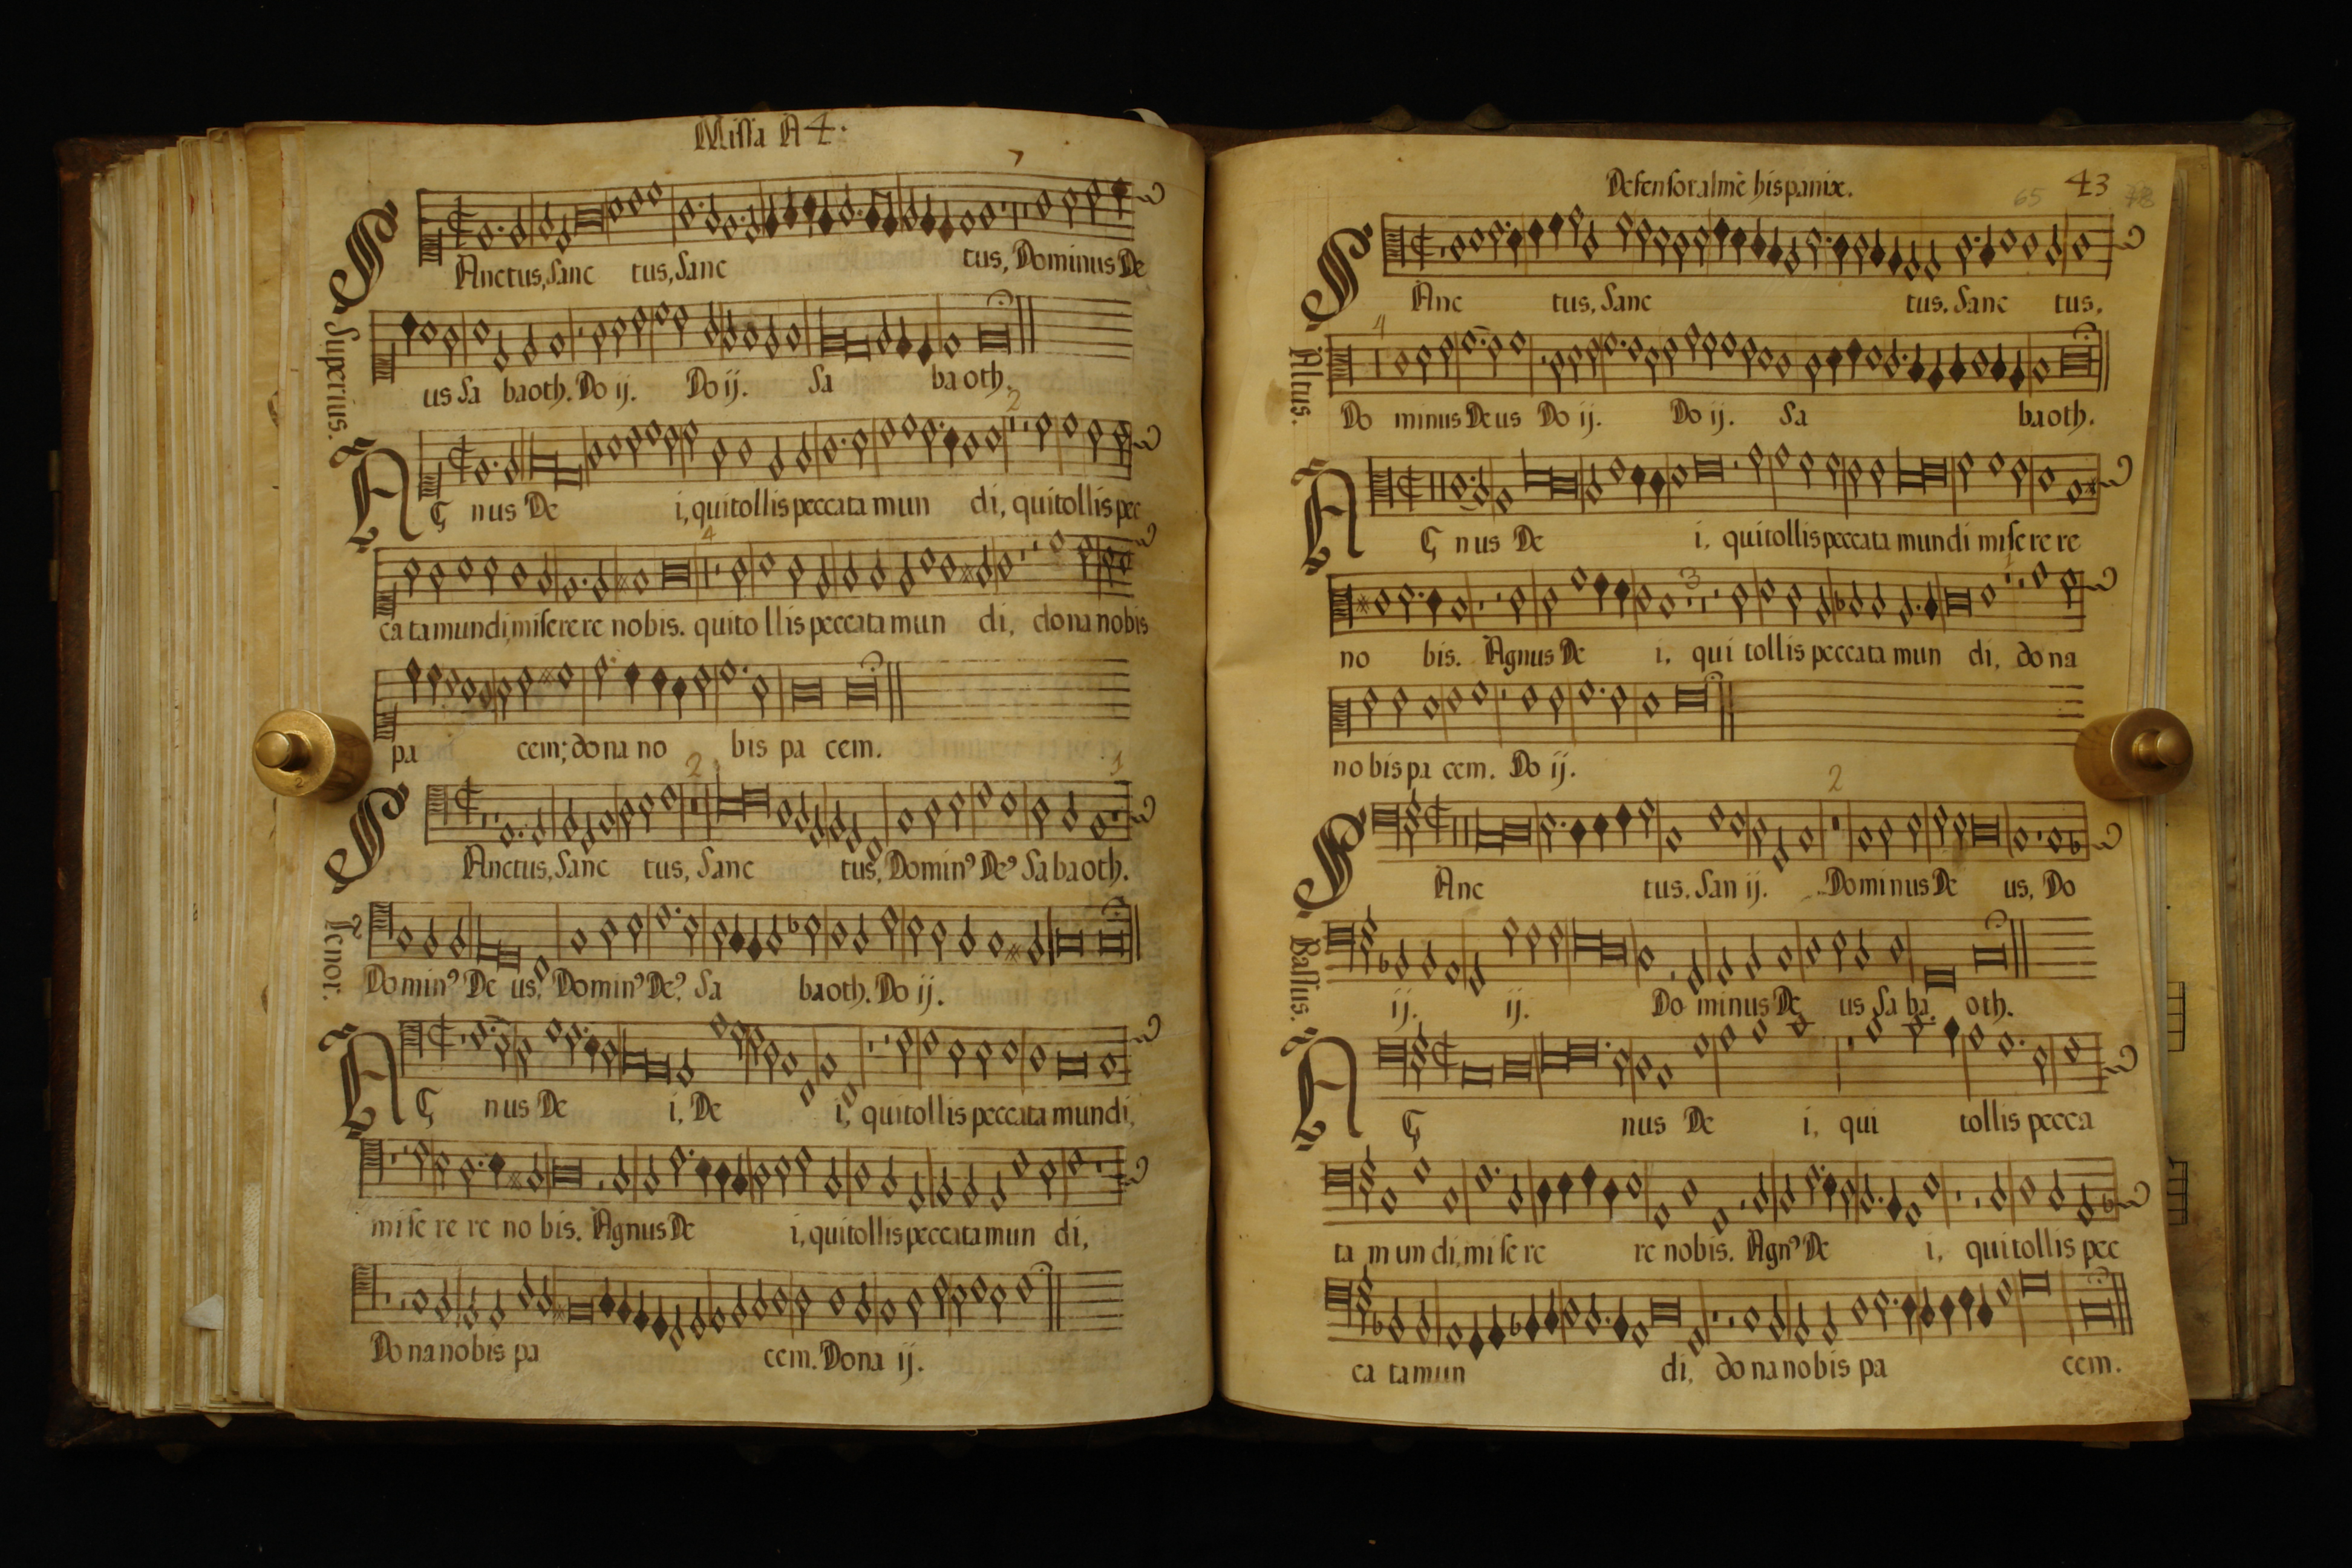 Missa A 4.
Superius.
SAnctus, Sanc tus, Sanc tus, Dominus De
us Sa baoth. Do ij. Do ij. Sa baoth.
AG nus De i, qui tollis peccata mun di, qui tollis pec
ca ta mundi, miserere nobis. qui to llis peccata mun di, dona nobis
pa cem; dona no bis pa cem.
Tenor.
SAnctus, Sanc tus, Sanc tus, Dominꝰ Deꝰ Sabaoth.
Dominꝰ De us, Dominꝰ Deꝰ Sa baoth. Do ij.
AG nus De i, De i, qui tollis peccata mundi,
mise re re no bis. Agnus De i, qui tollis peccata mun di,
Dona nobis pa cem. Dona ij.
Defensor almę hispanix.
43
65
78
Altus.
SAnc tus, Sanc tus. Sanc tus,
4
Do minus Deus Do ij. Do ij. Sa baoth.
AG nus De i. qui tollis peccata mundi mise re re
3
no bis. Agnus De i. qui tollis peccata mun di, dona
nobis pa cem. Do ij.
2
Bassus.
SAnc tus. San ij. Dominus De us, Do
ij. ij. Do minus De us Sa ba. oth.
AG nus De i, qui tollis pecca
ta mundi, mise re re nobis. Agnꝰ De i, qui tollis pec
ca ta mun di, dona nobis pa cem.